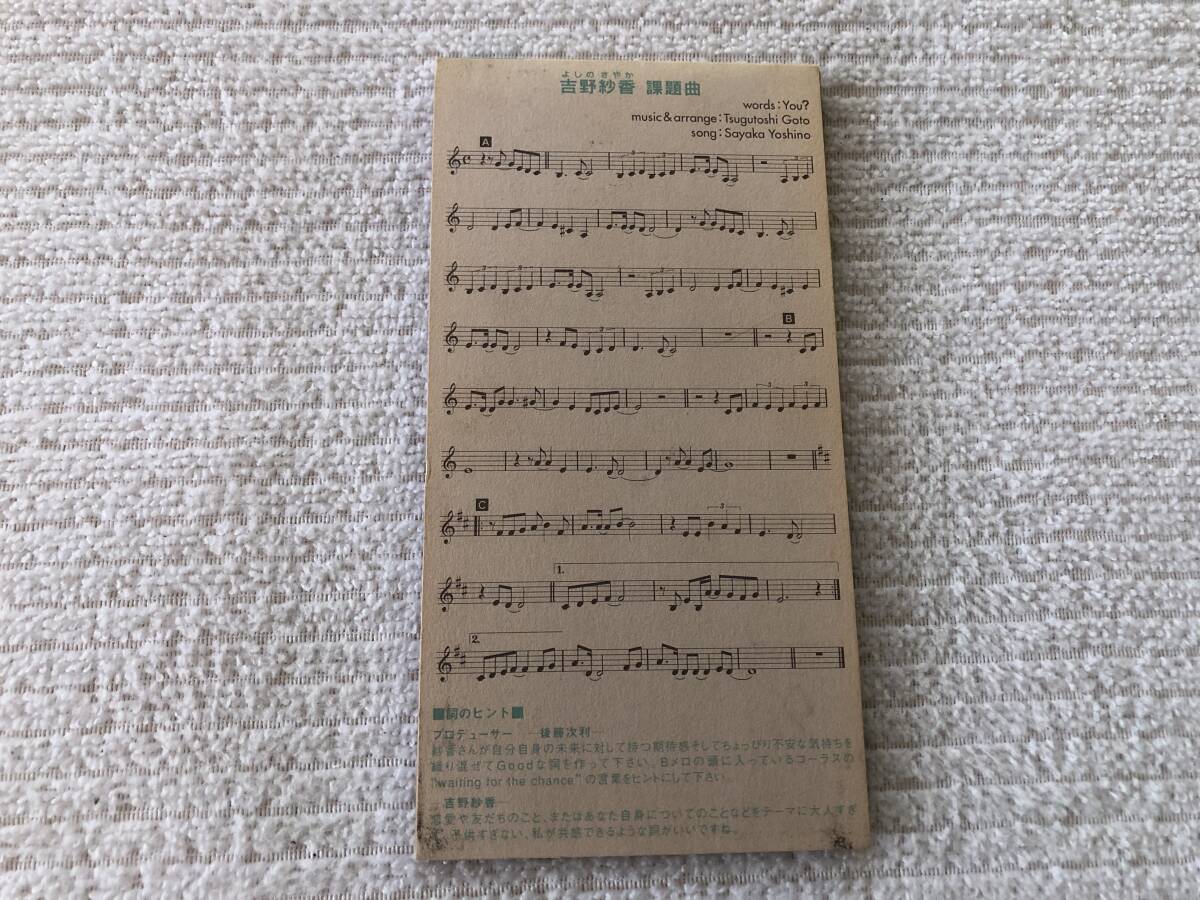 よしの さやか
吉野紗香 課題曲
words：You?
music＆arrange：Tsugutoshi Goto
song：Sayaka Yoshino
A
3
3
3
3
3
3
3
B
3
3
C
3
1.
2.
■詞のヒント■
プロデューサー ―後藤次利―
紗香さんが自分自身の未来に対して持つ期待感そしてちょっぴり不安な気持ちを
織り混ぜてGoodな詞を作って下さい。Bメロの頭に入っているコーラスの
“waiting for the chance”の言葉をヒントにして下さい。
―吉野紗香―
恋愛や友だちのこと、またはあなた自身についてのことなどをテーマに大人すぎ
子供すぎない、私が共感できるような詞がいいですね。